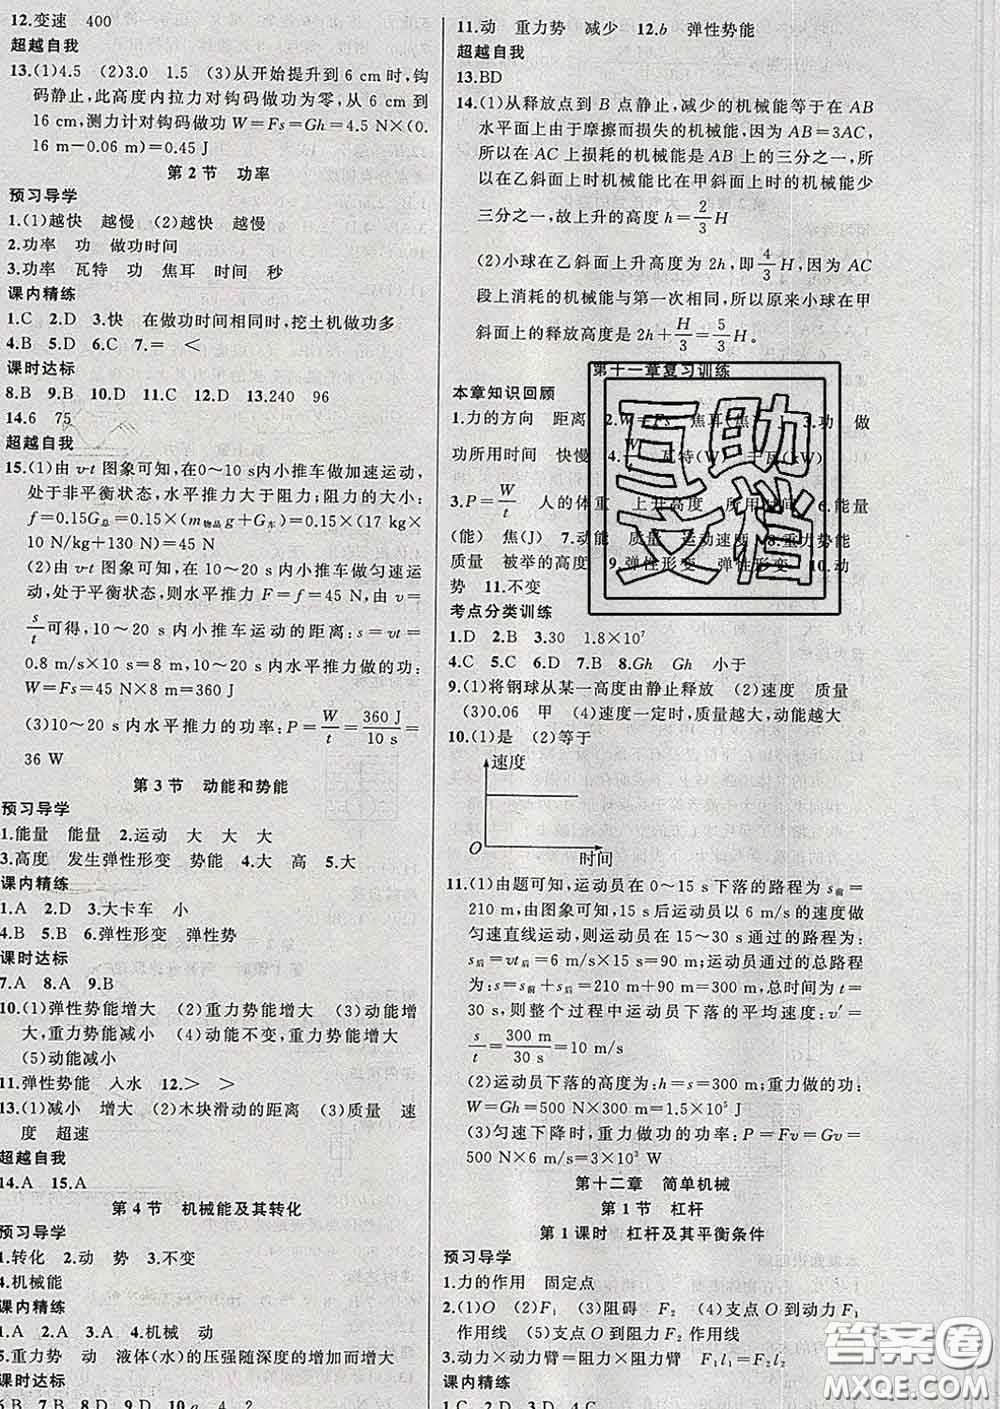 12.变速 400
超越自我
13.(1)4.5 (2)3.0 1.5 (3)从开始提升到 6 cm 时,钩
码静止,此高度内拉力对钩码做功为零,从 6 cm 到
16 cm,测力计对钩码做功 W=Fs=Gh=4.5 N×(0.
16 m-0.06 m)=0.45 J
第 2 节 功率
预习导学
1.(1)越快 越慢 (2)越快 越慢
2.功率 功 做功时间
3.功率 瓦特 功 焦耳 时间 秒
课内精练
1.C 2.D 3.快 在做功时间相同时,挖土机做功多
4.B 5.D 6.C 7.= <
课时达标
8.B 9.B 10.D 11.C 12.D 13.240 96
14.6 75
超越自我
15.(1)由 v-t 图象可知,在0~10 s内小推车做加速运动,
处于非平衡状态,水平推力大于阻力;阻力的大小:
f=0.15G总=0.15×(m物品g+G车)=0.15×(17 kg×
10 N/kg+130 N)=45 N
(2)由 v-t 图象可知,在10~20 s内小推车做匀速运
动,处于平衡状态,则水平推力 F=f=45 N,由 v=
s/t可得,10~20 s 内小推车运动的距离:s=vt=
0.8 m/s×10 s=8 m,10~20 s内水平推力做的功:
W=Fs=45 N×8 m=360 J
(3)10~20 s内水平推力的功率:P=W/t=360 J/10 s=
36 W
第 3 节 动能和势能
预习导学
1.能量 能量 2.运动 大 大 大
3.高度 发生弹性形变 势能 4.大 高 5.大
课内精练
1.A 2.D 3.大卡车 小
4.B 5.B 6.弹性形变 弹性势
课时达标
7.A 8.A 9.B
10.(1)弹性势能增大 (2)重力势能增大 (3)动能增
大,重力势能减小 (4)动能不变,重力势能增大
(5)动能减小
11.弹性势能 人水 12.> >
13.(1)减小 增大 (2)木块滑动的距离 (3)质量 速
度 超速
超越自我
14.A 15.A
第 4 节 机械能及其转化
预习导学
1.转化 2.动 势 3.不变
4.机械能
课内精练
1.A 2.A 3.A 4.机械 动
5.重力势 动 液体(水)的压强随深度的增加而增大
课时达标
6.B 7.B 8.D 9.D 10.a 4 2
11.动 重力势 减少 12.b 弹性势能
超越自我
13.BD
14.(1)从释放点到 B 点静止,减少的机械能等于在 AB
水平面上由于摩擦而损失的机械能,因为 AB=3AC,
所以在 AC 上损耗的机械能是 AB 上的三分之一,所
以在乙斜面上时机械能比在甲斜面上时机械能少
三分之一,故上升的高度 h=2/3H
(2)小球在乙斜面上升高度为 2h,即4/3H,因为 AC
段上消耗的机械能与第一次相同,所以原来小球在甲
斜面上的释放高度是 2h+H/3=5/3H。
第十一章复习训练
本章知识回顾
1.力的方向 距离 2.W=Fs 焦耳 焦 J 3.功 做
功所用时间 快慢 4.W/t 瓦特(W) 瓦(kW)
5.P=W/t 人的体重 上升高度 所用时间 6.能量
(能) 焦(J) 7.动能 质量 运动速度 8.重力势能
质量 被举的高度 9.弹性形变 弹性形变 10.动
势 11.不变
考点分类训练
1.D 2.B 3.30 1.8×10⁷
4.C 5.C 6.D 7.B 8.Gh Gh 小于
9.(1)将钢球从某一高度由静止释放 (2)速度 质量
(3)0.06 甲 (4)速度一定时,质量越大,动能越大
10.(1)是 (2)等于
速度
O 时间
11.(1)由题可知,运动员在 0~15 s 下落的路程为 s前=
210 m,由图象可知,15 s 后运动员以 6 m/s 的速度做
匀速直线运动,则运动员在 15~30 s 下落的路程为:
s后=vt后=6 m/s×15 s=90 m;运动员通过的总路
程为:s=s前+s后=210 m+90 m=300 m,总时间为 t=
30 s,则整个过程中运动员下落的平均速度:v′=
s/t=300 m/30 s=10 m/s
(2)运动员下落的高度为:h=s=300 m;重力做的功:
W=Gh=500 N×300 m=1.5×10⁵ J
(3)匀速下降时,重力做功的功率:P=Fv=Gv=
500 N×6 m/s=3×10³ W
第十二章 简单机械
第 1 节 杠杆
第 1 课时 杠杆及其平衡条件
预习导学
1.力的作用 固定点
2.(1)O (2)F₁ (3)阻碍 F₂ (4)支点 O 到动力 F₁
作用线 (5)支点 O 到阻力 F₂ 作用线
3.动力×动力臂=阻力×阻力臂 F₁l₁=F₂l₂
课内精练
1.C 2.D 3.D 4.C
互助
文档
答案圈
MXQE.COM